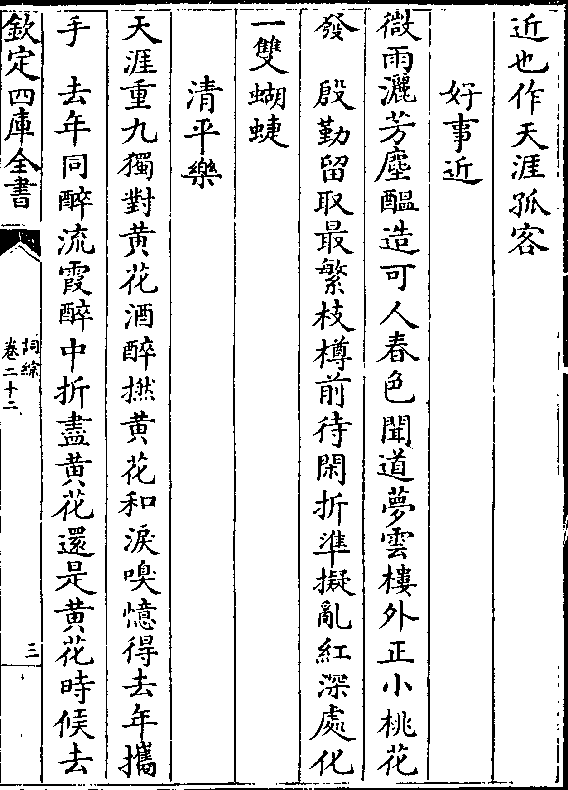 近也作天涯孤客
好事近
微雨灑芳塵醖造可人春色聞道夢雲樓外正小桃花
發　殷勤留取最繁枝樽前待閑折準擬亂紅深處化
一雙蝴蜨
清平樂
天涯重九獨對黄花酒醉撚黄花和淚嗅憶得去年攜
手　去年同醉流霞醉中折盡黄花還是黄花時候去
欽定四庫全書
詞綜
卷二十二
三